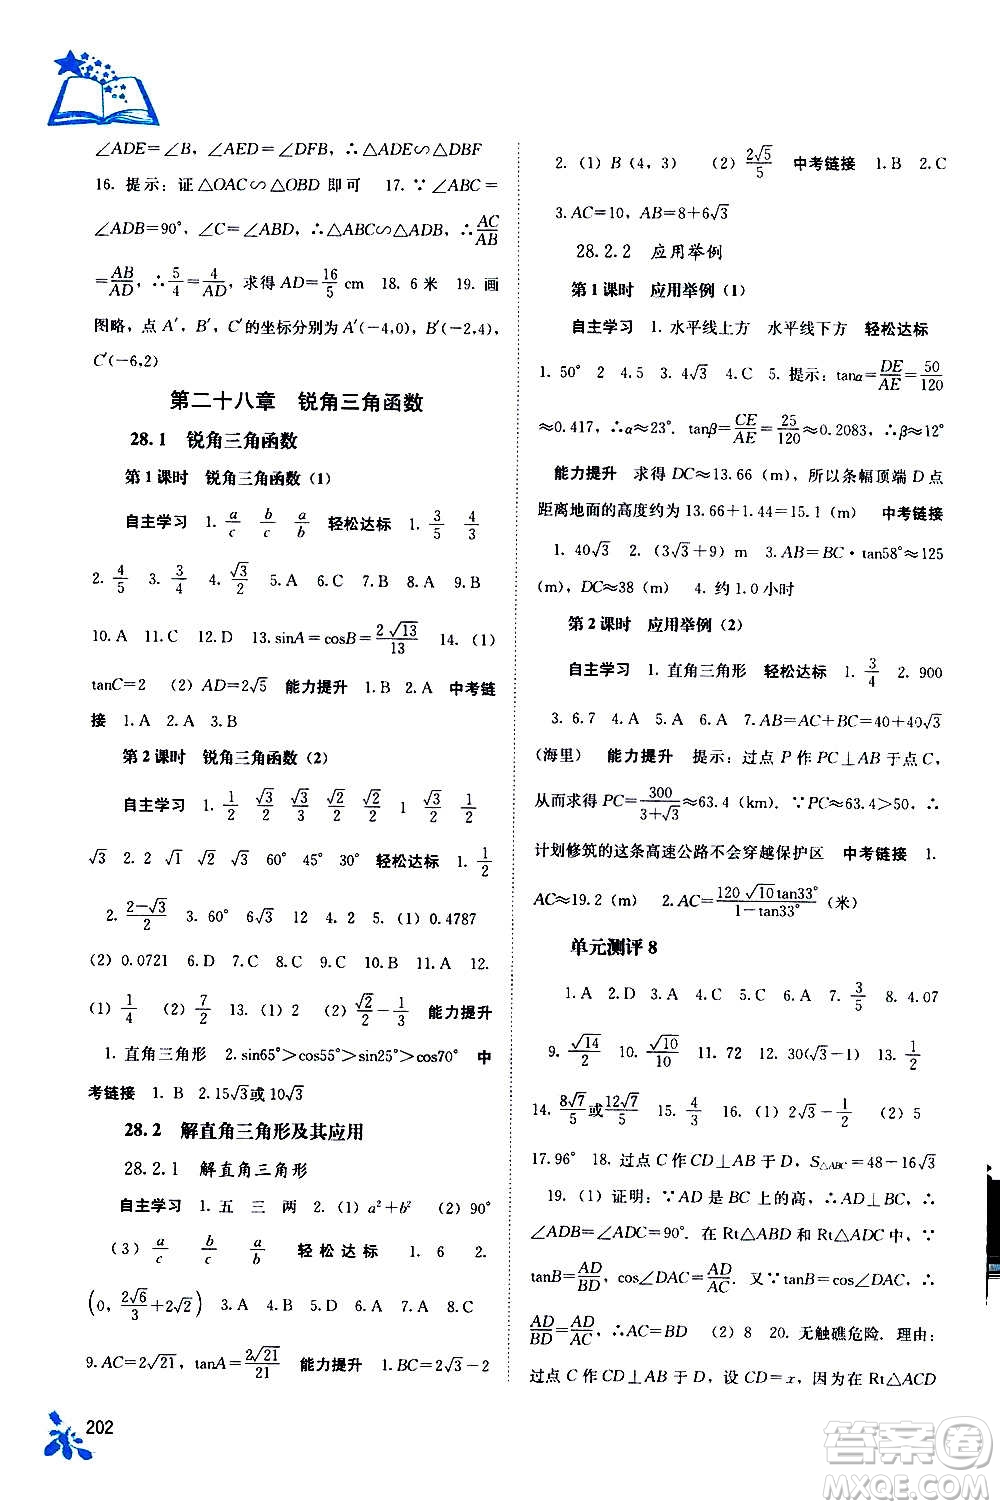 ∠ADE=∠B, ∠AED=∠DFB, ∴△ADE∽△DBF
16. 提示：证△OAC∽△OBD 即可　17. ∵∠ABC=
∠ADB=90°, ∠C=∠ABD, ∴△ABC∽△ADB, ∴AC/AB
=AB/AD, ∴5/4=4/AD, 求得 AD=16/5 cm　18. 6 米　19. 画
图略，点 A′，B′，C′的坐标分别为 A′(-4,0), B′(-2,4),
C′(-6,2)
第二十八章　锐角三角函数
28.1　锐角三角函数
第 1 课时　锐角三角函数 (1)
自主学习　1. a/c　b/c　a/b　轻松达标　1. 3/5　4/3
2. 4/5　3. 3/4　4. √3/2　5. A　6. C　7. A　8. A　9. B
10. A　11. C　12. D　13. sinA=cosB=2√13/13　14. (1)
tanC=2　(2) AD=2√5　能力提升　1. B　2. A　中考链
接　1. A　2. A　3. B
第 2 课时　锐角三角函数 (2)
自主学习　1. 1/2　√3/2　√3/3　√2/2　√2/2　1　√3/2　1/2
√3　2. 2　√1　√2　√3　60°　45°　30°　轻松达标　1. 1/2
2. (2-√3)/2　3. 60°　6√3　12　4. 2　5. (1) 0.4787
(2) 0.0721　6. A　7. D　8. D　9. C　10. B　11. A　12.
(1) 1/4　(2) 7/2　13. (1) 0　(2) √2/2-1/3　能力提升
1. 直角三角形　2. sin65°>cos55°>sin25°>cos70°　中
考链接　1. B　2. 15√3或10√3
28.2　解直角三角形及其应用
28.2.1　解直角三角形
自主学习　1. 五　三　两　2. (1) a²+b²　(2) 90°
(3) a/c　b/c　a/b　轻松达标　1. 6　2.
(0, 2√6/3+2√2)　3. A　4. A　5. B　6. A　7. A　8. C
9. AC=2√21, tanA=2√21/21　能力提升　1. BC=2√3-2
2. (1) B (4, 3)　(2) 2√5/5　中考链接　1. B　2. C
3. AC=10, AB=8+6√3
28.2.2　应用举例
第 1 课时　应用举例 (1)
自主学习　1. 水平线上方　水平线下方　轻松达标
1. 50°　2. 4.5　3. 4√3　4. C　5. 提示：tanα=DE/AE=50/120
≈0.417, ∴α≈23°. tanβ=CE/AE=25/120≈0.2083, ∴β≈12°
能力提升　求得 DC≈13.66 (m), 所以条幅顶端 D 点
距离地面的高度约为 13.66+1.44=15.1 (m)　中考链接
1. 40√3　2. (3√3+9) m　3. AB=BC·tan58°≈125
(m), DC≈38 (m)　4. 约 1.0 小时
第 2 课时　应用举例 (2)
自主学习　1. 直角三角形　轻松达标　1. 3/4　2. 900
3. 6.7　4. A　5. A　6. A　7. AB=AC+BC=40+40√3
(海里)　能力提升　提示：过点 P 作 PC⊥AB 于点 C,
从而求得 PC=300/(3+√3)≈63.4 (km). ∵PC≈63.4>50, ∴
计划修筑的这条高速公路不会穿越保护区　中考链接　1.
AC≈19.2 (m)　2. AC=120√10tan33°/(1-tan33°) (米)
单元测评 8
1. A　2. D　3. A　4. A　5. C　6. A　7. 3/5　8. 4.07
9. √14/2　10. √10/10　11. 72　12. 30(√3-1)　13. 1/2
14. 8√7/5或12√7/5　15. 4/3　16. (1) 2√3-1/2　(2) 5
17. 96°　18. 过点 C 作 CD⊥AB 于 D, S△ABC=48-16√3
19. (1) 证明：∵AD 是 BC 上的高，∴AD⊥BC, ∴
∠ADB=∠ADC=90°. 在 Rt△ABD 和 Rt△ADC 中，∵
tanB=AD/BD, cos∠DAC=AD/AC. 又∵tanB=cos∠DAC, ∴
AD/BD=AD/AC, ∴AC=BD　(2) 8　20. 无触礁危险. 理由：
过点 C 作 CD⊥AB 于 D, 设 CD=x, 可知在 Rt△ACD
202
答案圈
MXQE.COM